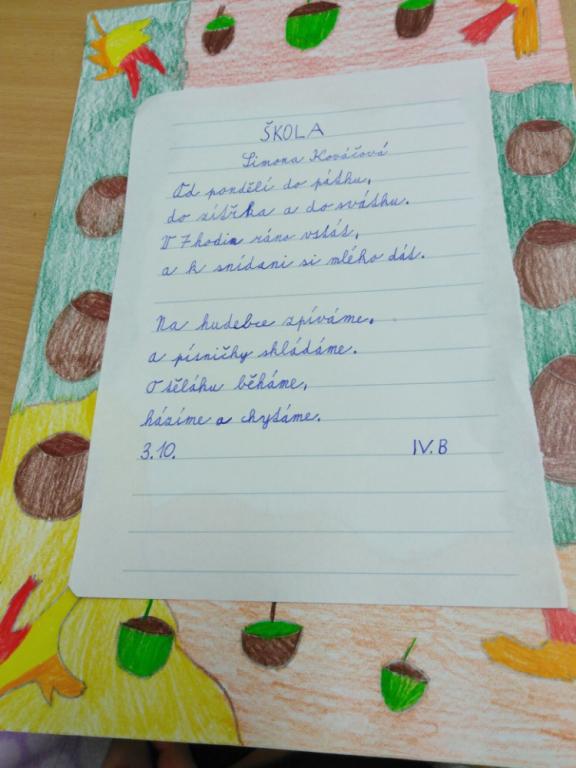 ŠKOLA
Simona Kováčová
Od pondělí do pátku,
do zítřka a do svátku.
V 7 hodin ráno vstát,
a k snídani si mlého dát.
Na hudebce zpíváme.
a písničky skládáme.
O těláku běháme,
házíme a chytáme.
3.10. IV.B